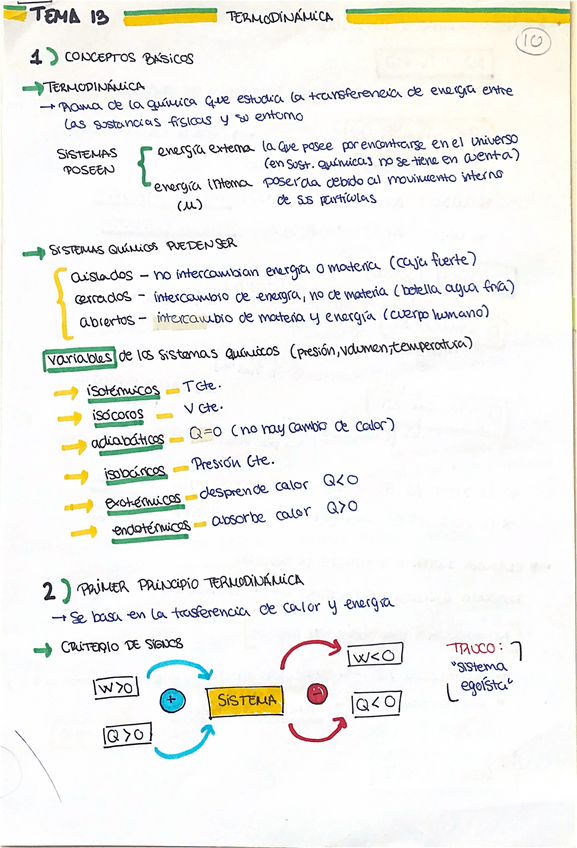 TEMA 13 TERMODINÁMICA
10
1) CONCEPTOS BÁSICOS
→ TERMODINÁMICA
→ Rama de la química que estudia la transferencia de energía entre
las sustancias físicas y su entorno
SISTEMAS POSEEN
energía externa la que posee por encontrarse en el Universo
(en sust. químicas no se tiene en cuenta)
energía interna poseída debido al movimiento interno
(u) de sus partículas
→ SISTEMAS QUÍMICOS PUEDEN SER
aislados - no intercambian energía o materia (caja fuerte)
cerrados - intercambio de energía, no de materia (botella agua fría)
abiertos - intercambio de materia y energía (cuerpo humano)
variables de los sistemas químicos (presión, volumen, temperatura)
→ isotérmicos - T cte.
→ isócoros - V cte.
→ adiabáticos - Q=0 (no hay cambio de calor)
→ isobáricos - Presión cte.
→ exotérmicos - desprende calor Q<0
→ endotérmicos - absorbe calor Q>0
2) PRIMER PRINCIPIO TERMODINÁMICA
→ Se basa en la trasferencia de calor y energía
→ CRITERIO DE SIGNOS
W>0 + SISTEMA - W<0
Q>0 Q<0
TRUCO:
"sistema
egoísta"